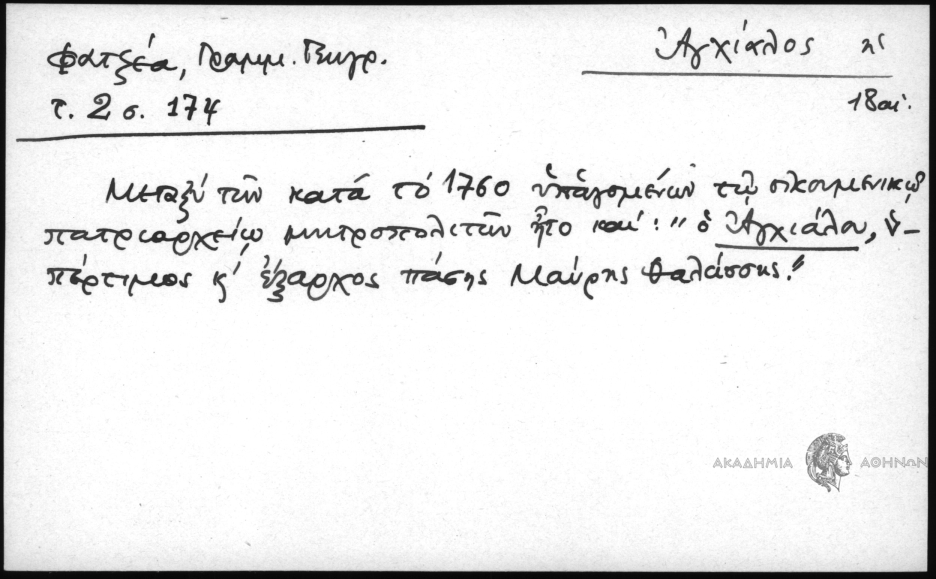 Φατζέα, Γραμμ. Γεωγρ.
τ. 2 σ. 174
Ἀγχίαλος ἡ
18 αἰ.
Μεταξύ τῶν κατά τό 1760 ὑπαγομένων τῷ οἰκουμενικῷ
πατριαρχείῳ μητροπολιτῶν ἦτο καί: "ὁ Ἀγχιάλου, ὑ-
πέρτιμος κ' ἔξαρχος πάσης Μαύρης θαλάσσης."
ΑΚΑΔΗΜΙΑ ΑΘΗΝΩΝ